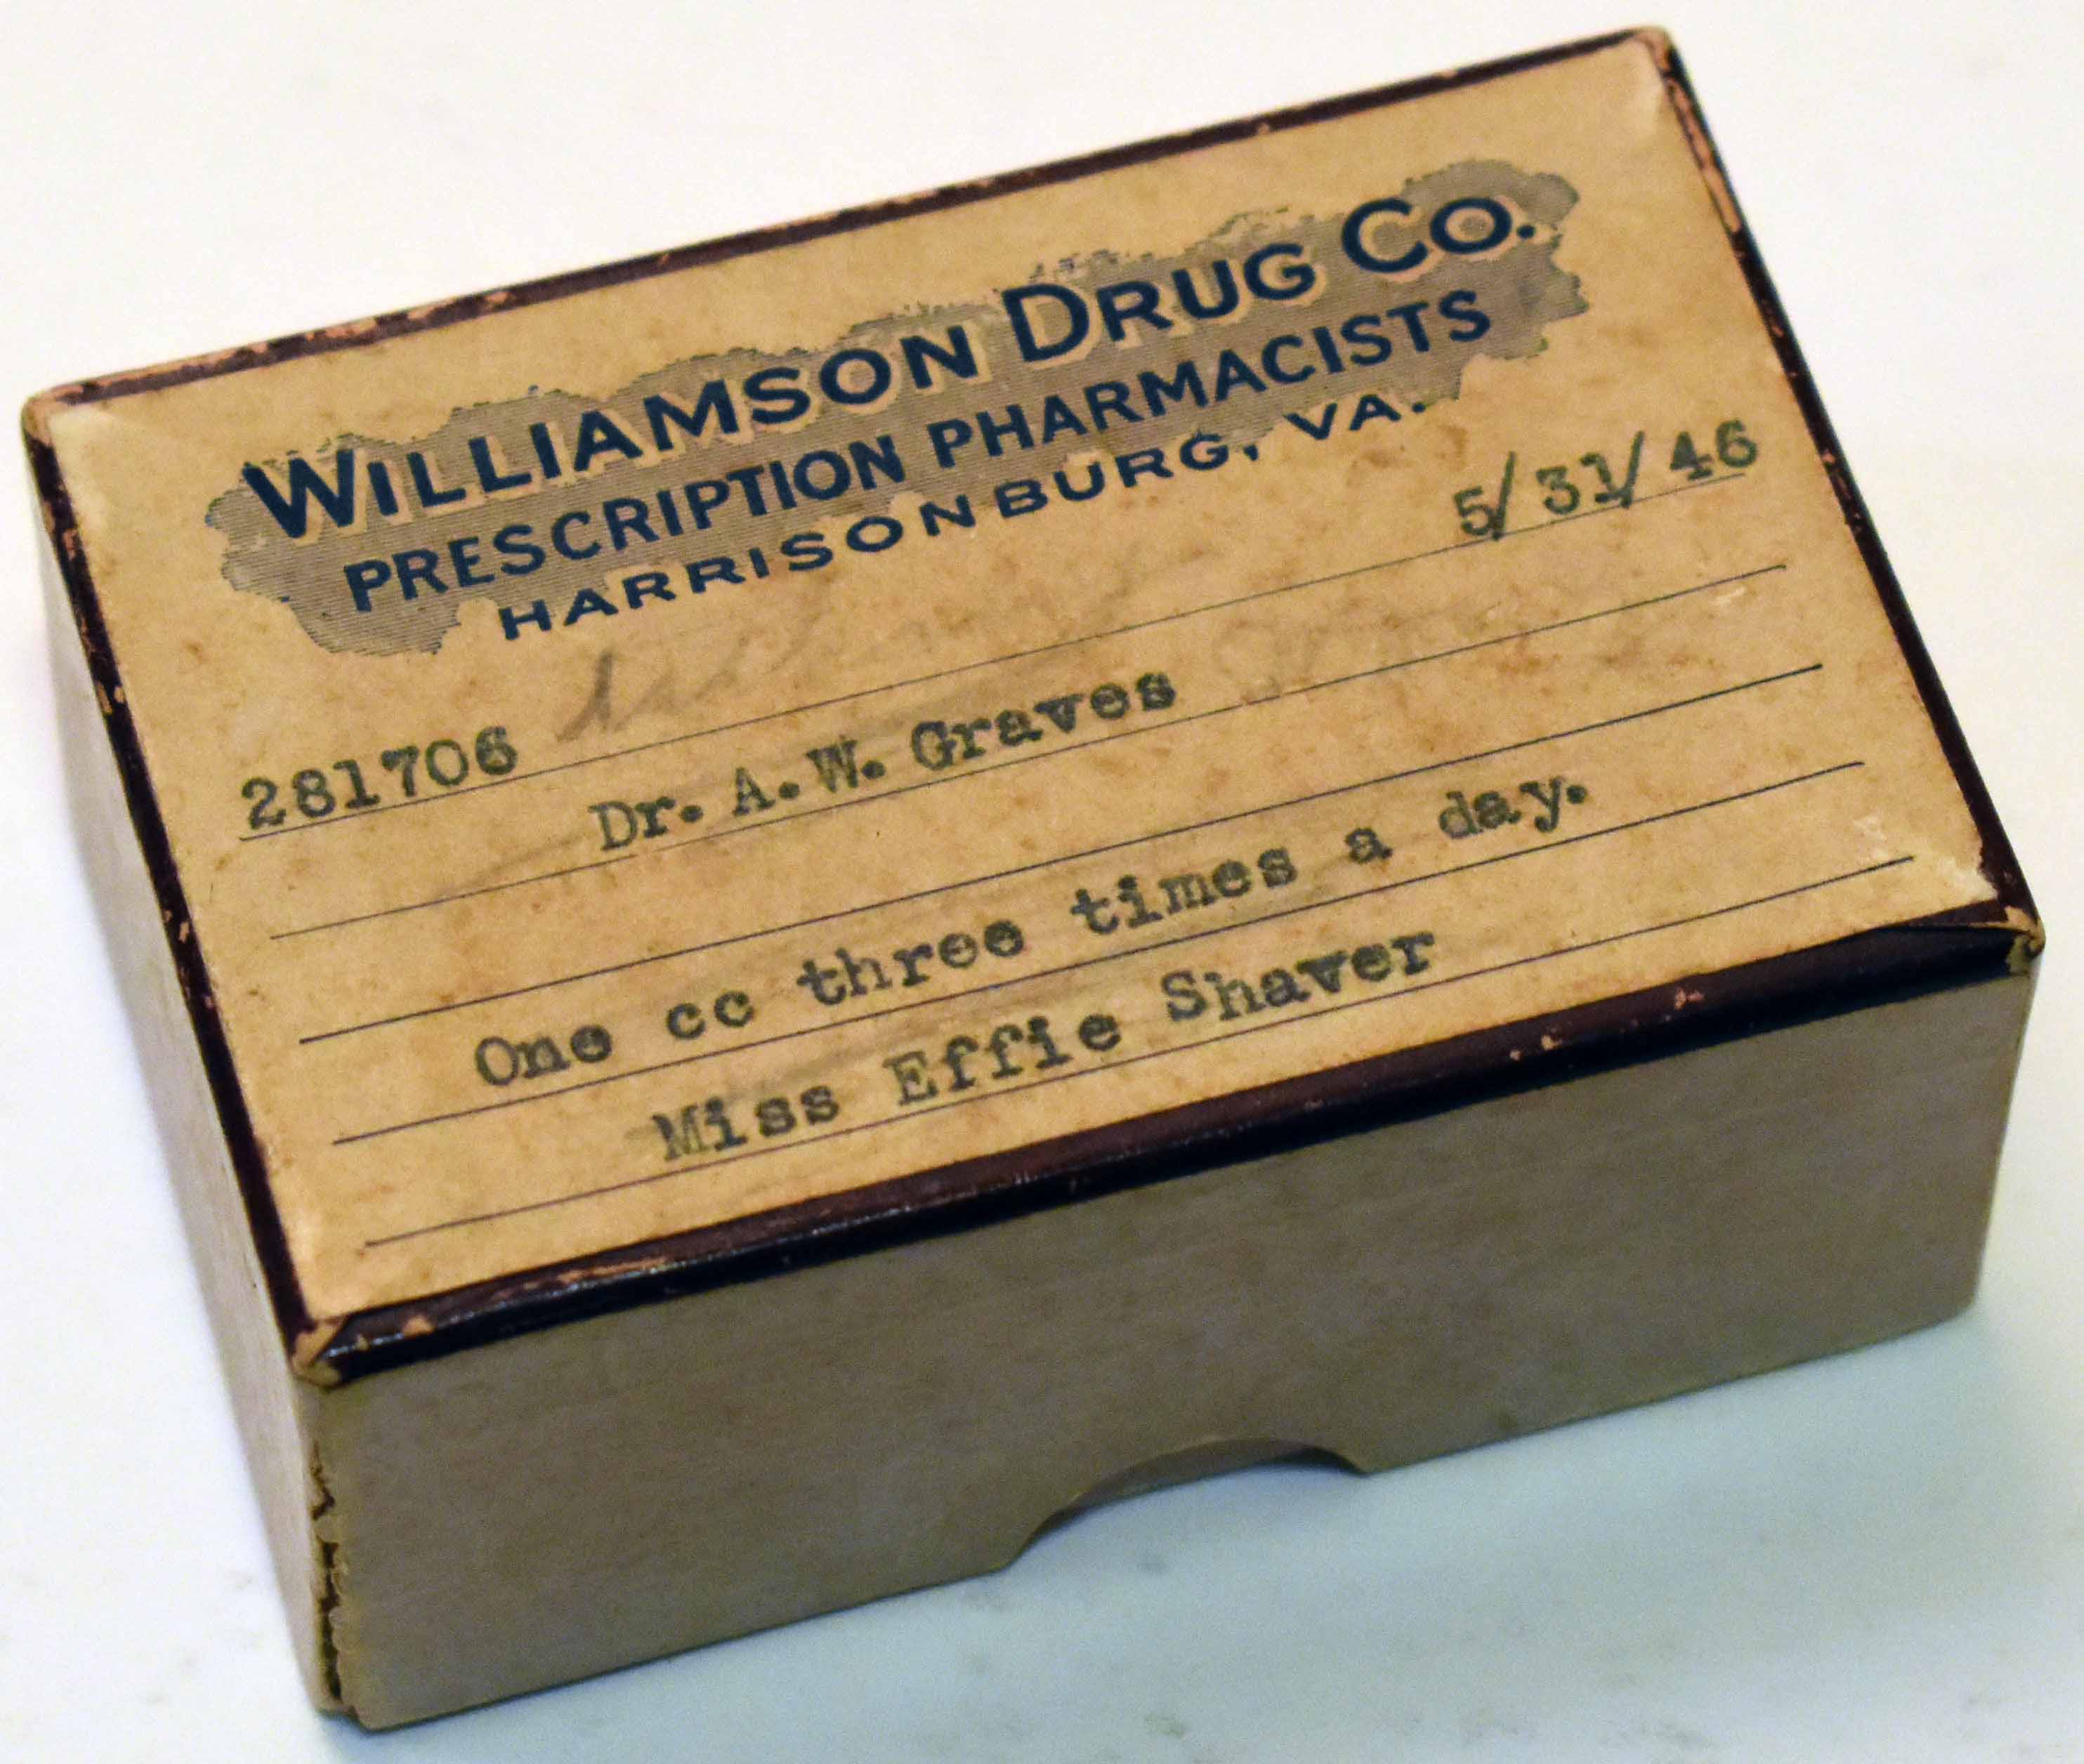 WILLIAMSON DRUG CO.
PRESCRIPTION PHARMACISTS
HARRISONBURG, VA.
281706 5/31/46
Dr. A.W. Graves
One cc three times a day.
Miss Effie Shaver